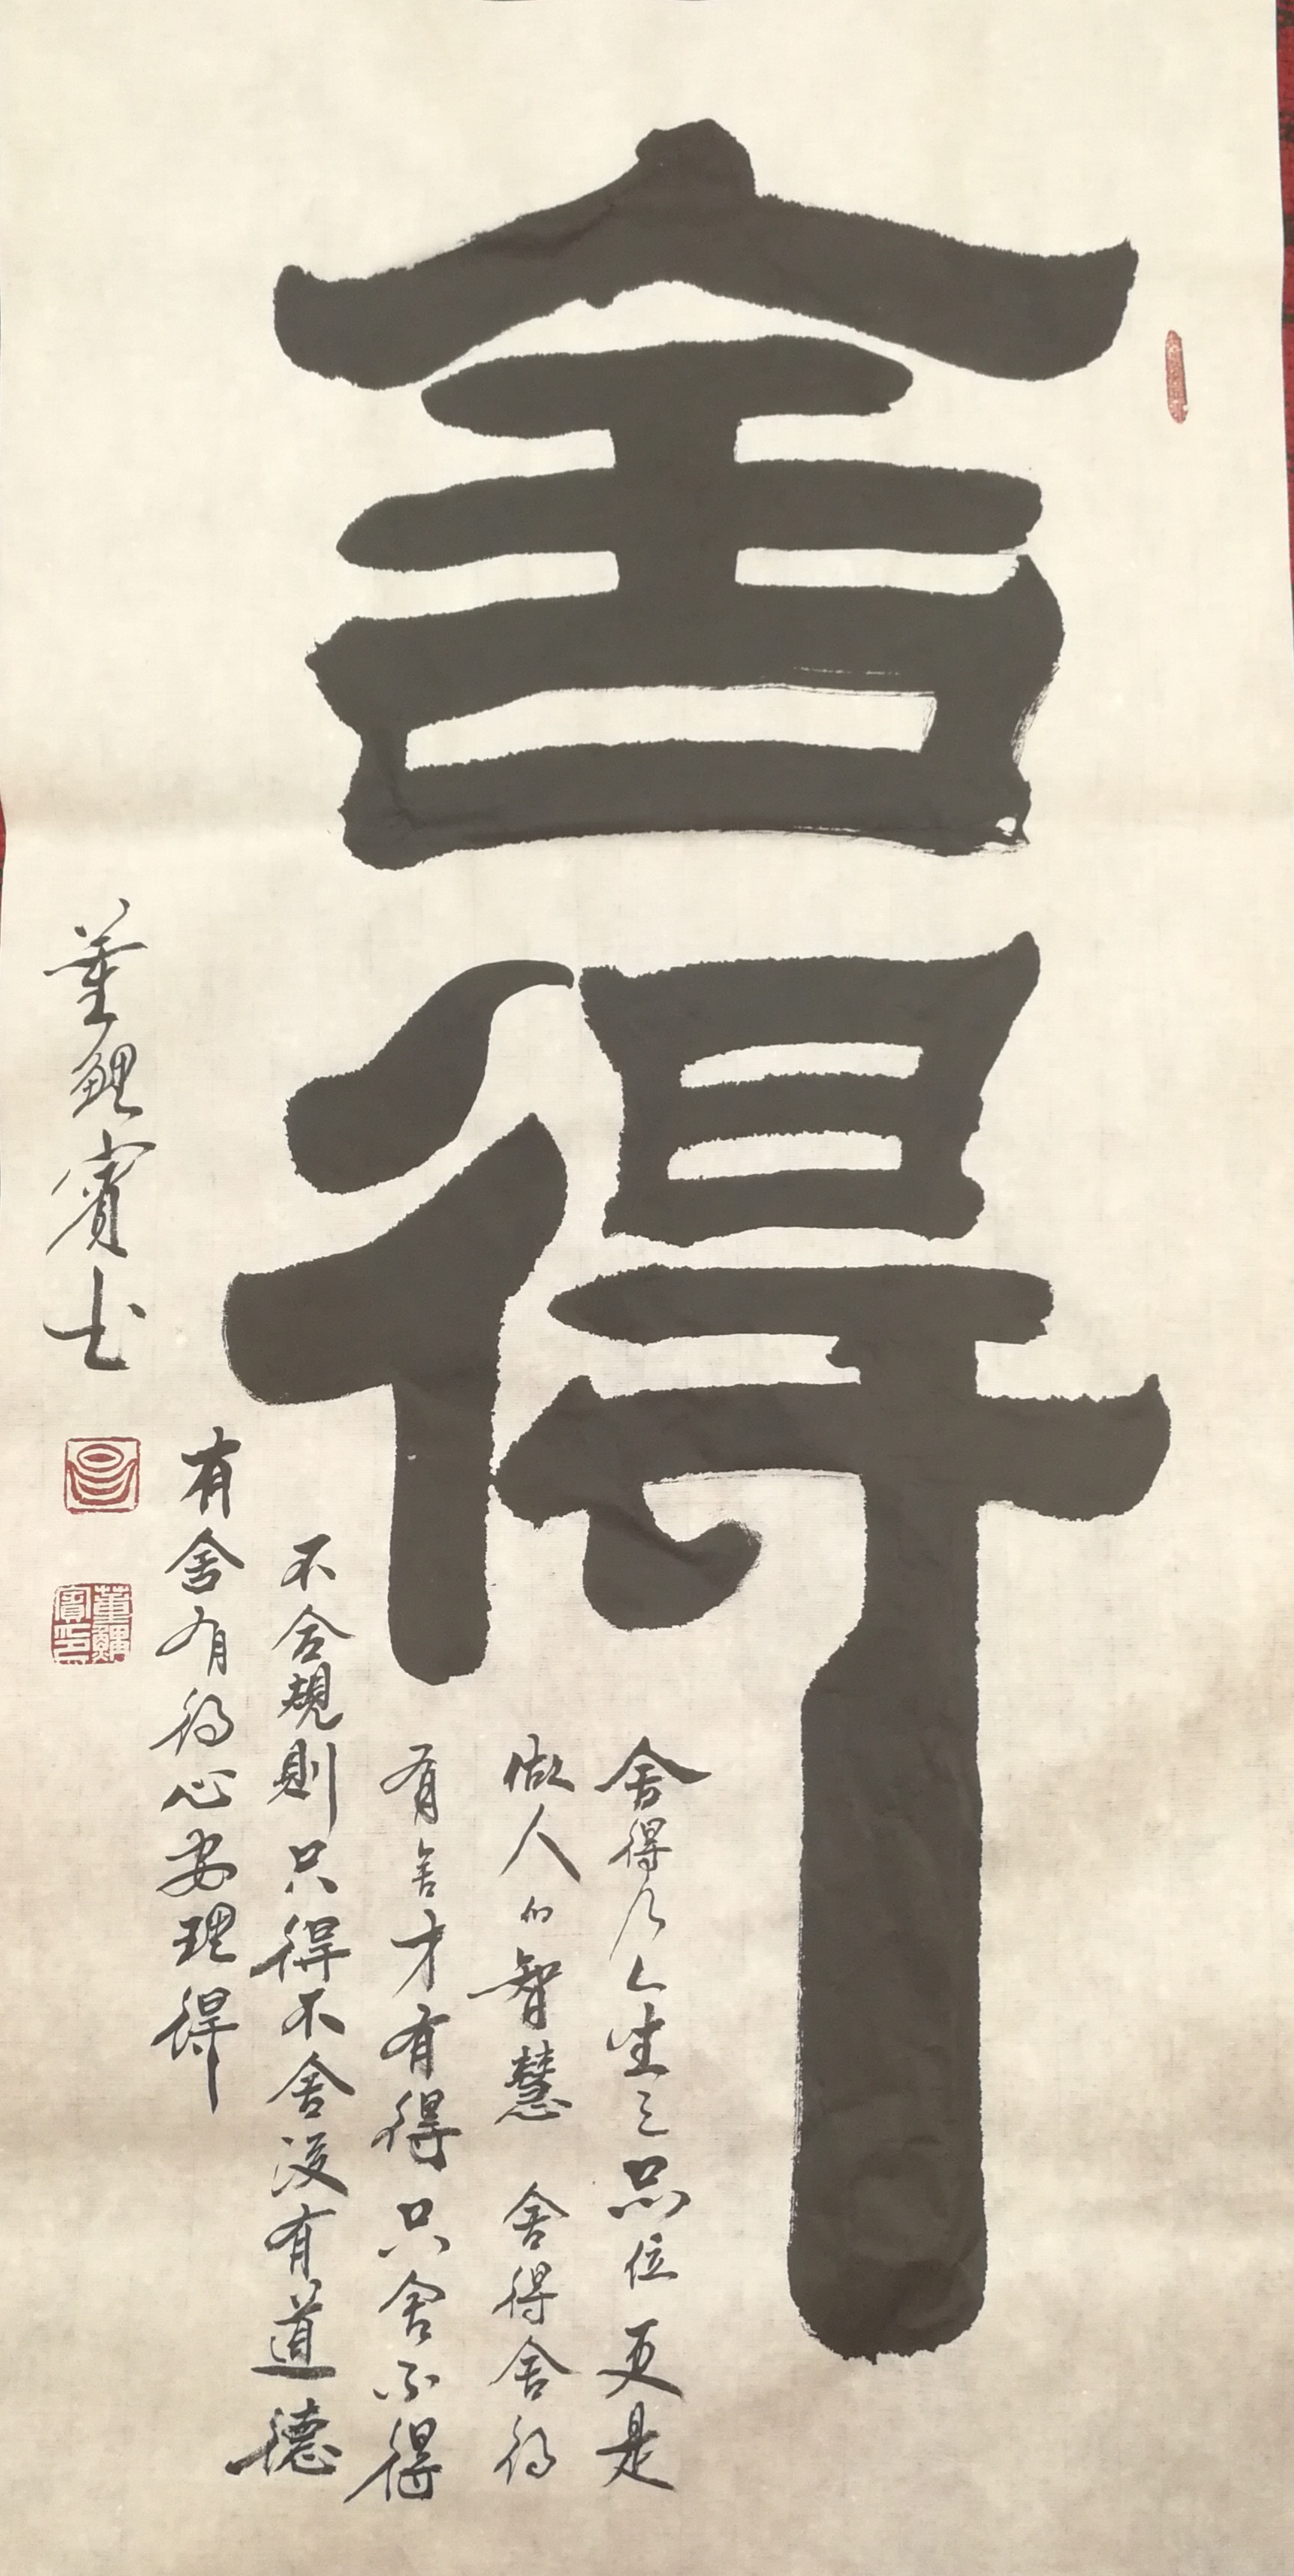 舍得
舍得乃人生之品位更是
做人的智慧 舍得舍得
有舍才有得 只舍不得
不合規則只得不舍没有道德
有舍有得心安理得
董鯤賓书